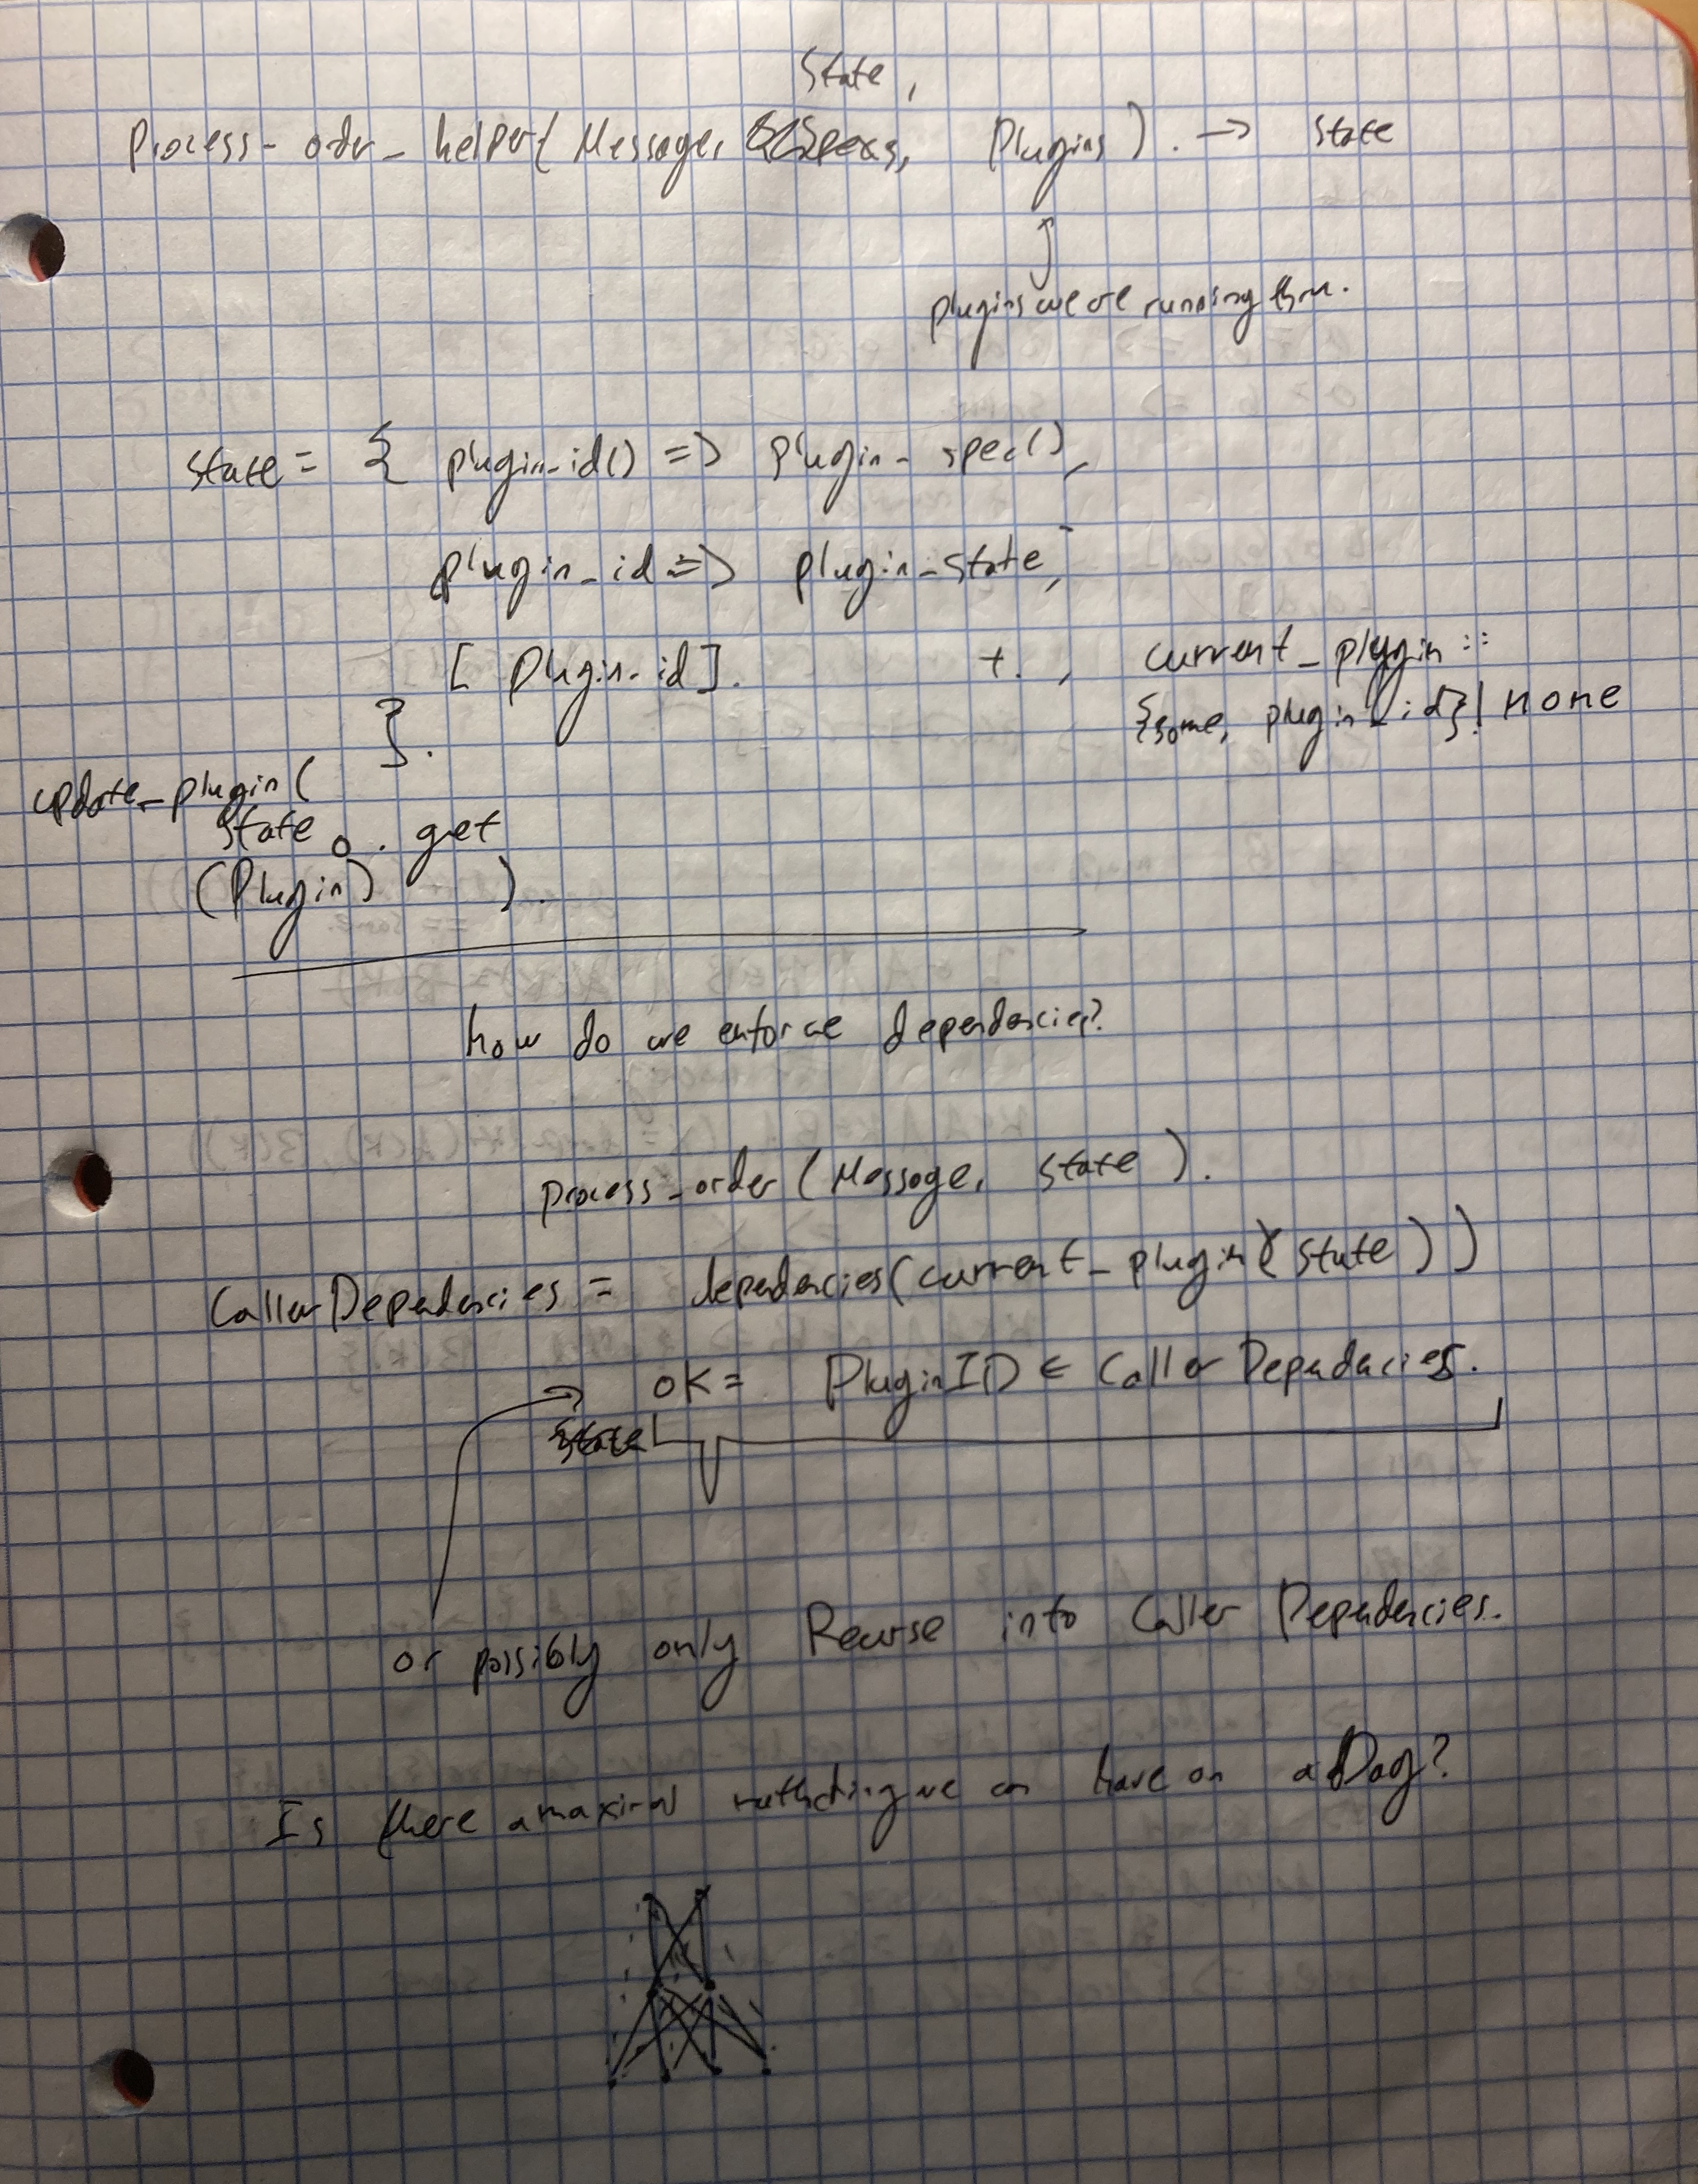 State,
Process-order_helper( Message, Specs, Plugins ). -> state
plugins we are running thru.
state = { plugin_id() => plugin-spec(),
plugin_id => plugin_state,
[ Plugin-id ]. +. , current_plugin ::
{some, plugin_id} | none
}.
update_plugin(
State . get
(Plugin) ).
how do we enforce dependencies?
process_order ( Message, State ).
Caller Dependencies = dependencies(current_plugin(state))
OK = PluginID ∈ Caller Dependencies.
State
or possibly only Recurse into Caller Dependencies.
Is there a maximal we can have on a Dag?